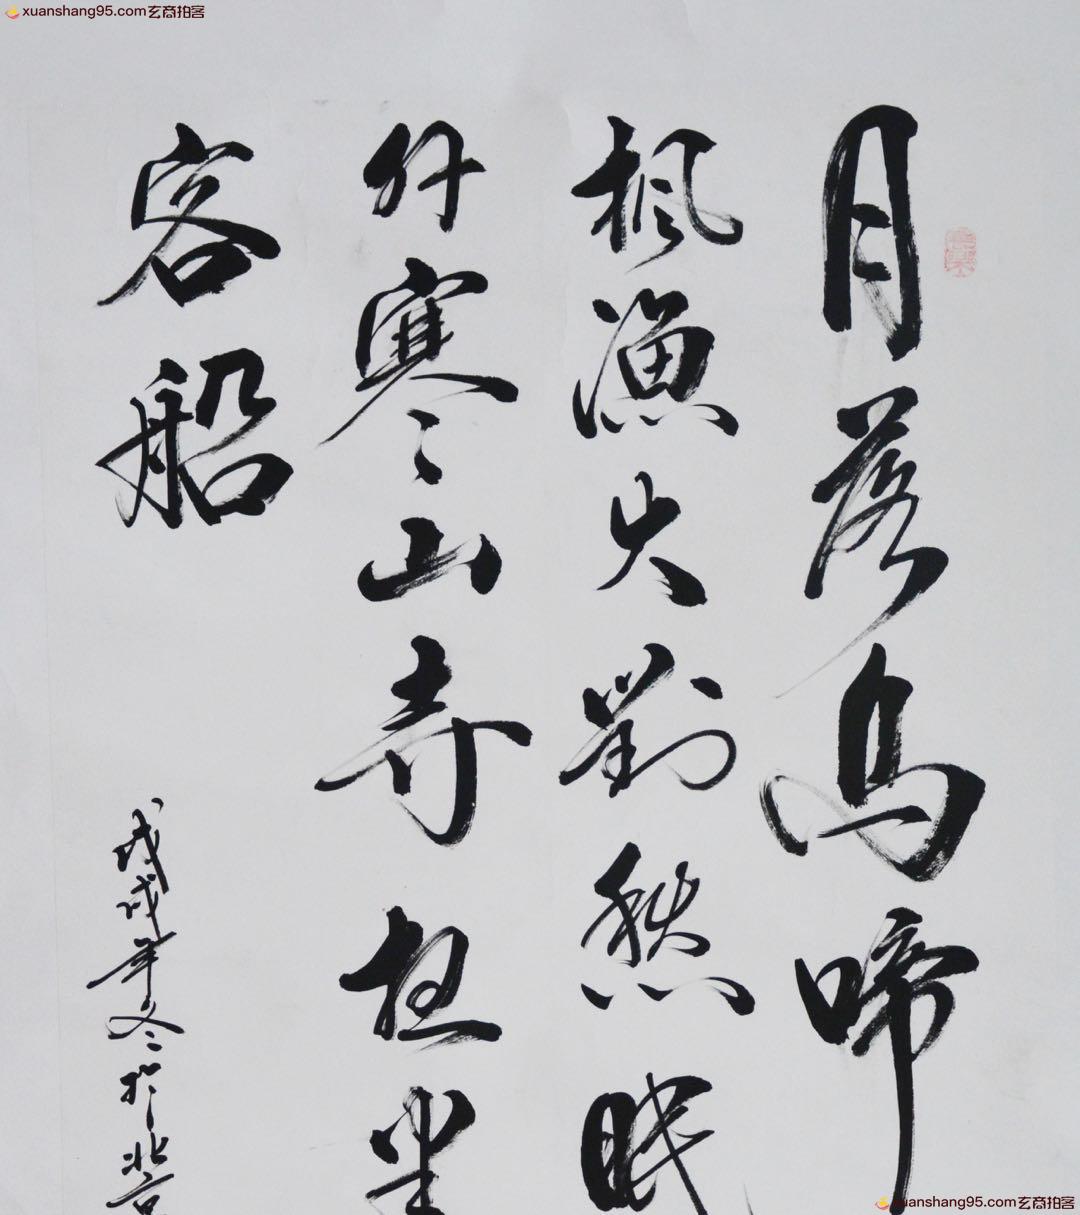 xuanshang95.com玄商拍客
月落烏啼
枫漁火對愁眠
外寒山寺夜半
客船
戊戌年冬於北京
xuanshang95.com玄商拍客